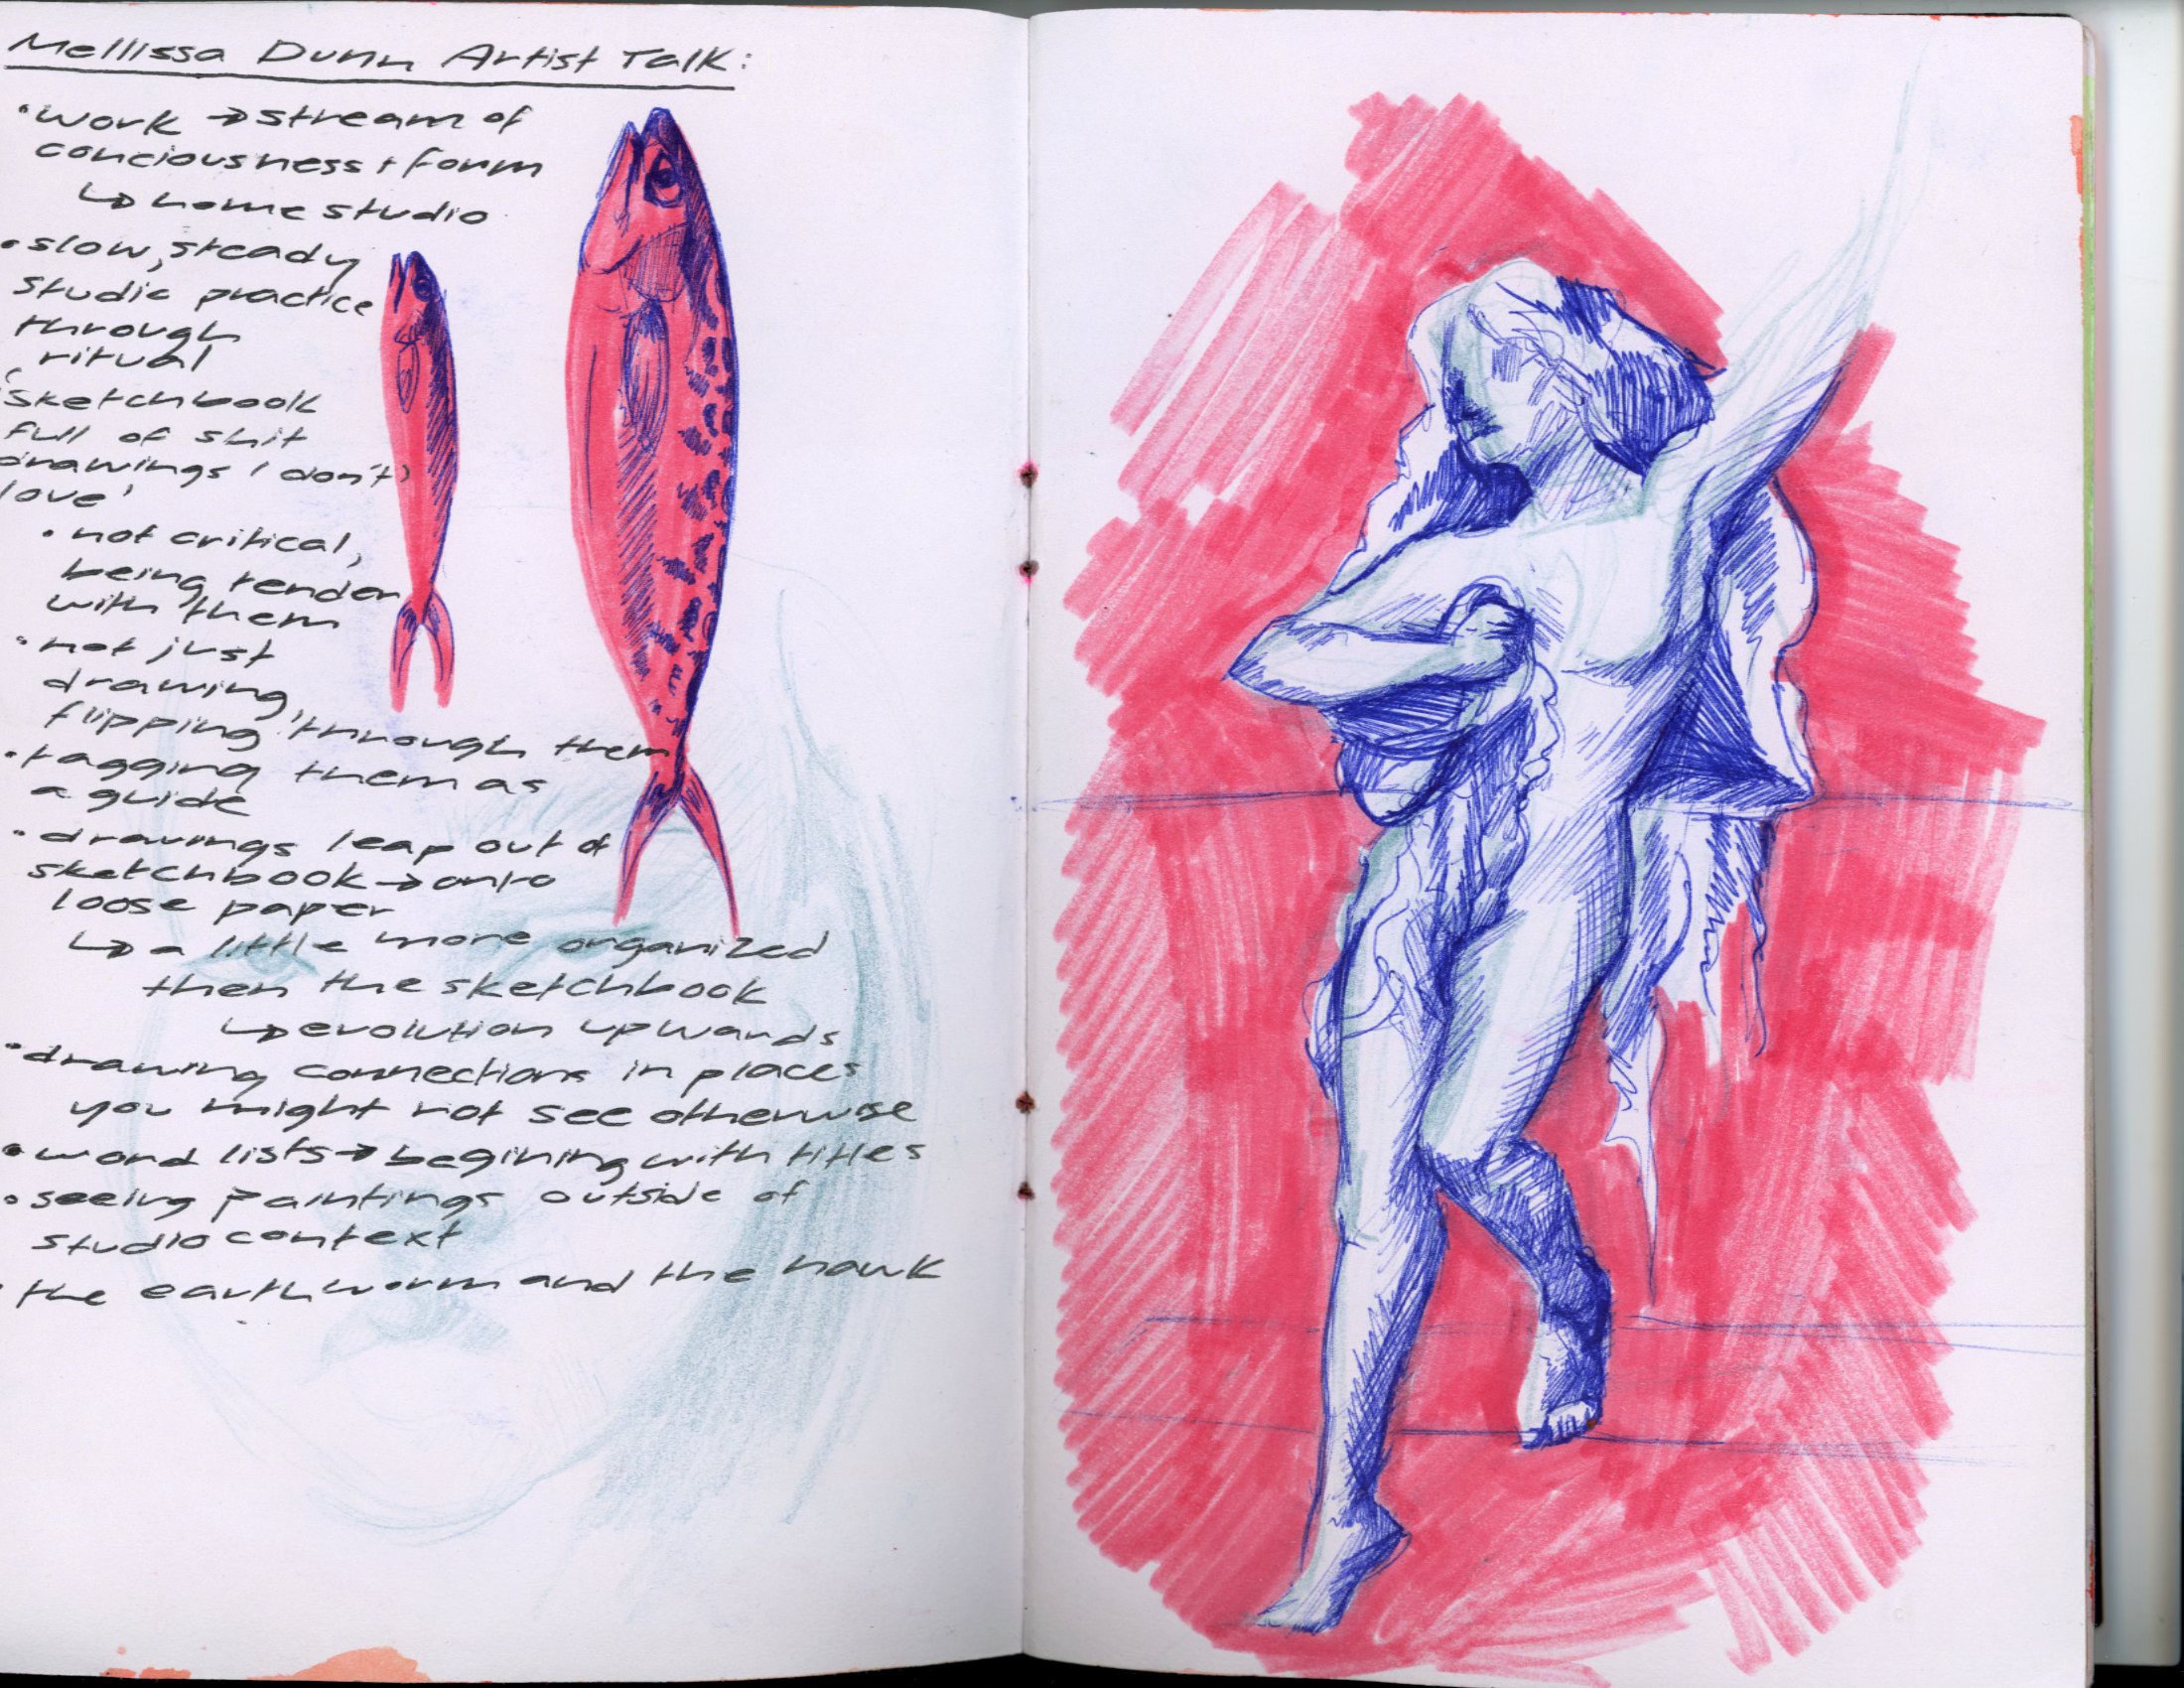 Mellissa Dunn Artist Talk:
• work → stream of
conciousness + form
↳ home studio
• slow, steady
studio practice
through
ritual
'sketchbook
full of shit
drawings I don't
love'
• not critical,
being tender
with them
• not just
drawing,
flipping through them
• tagging them as
a guide
• drawings leap out of
sketchbook → onto
loose paper
↳ a little more organized
then the sketchbook
↳ evolution upwards
• drawing connections in places
you might not see otherwise
• word lists → begining with titles
• seeing paintings outside of
studio context
• the earthworm and the hawk